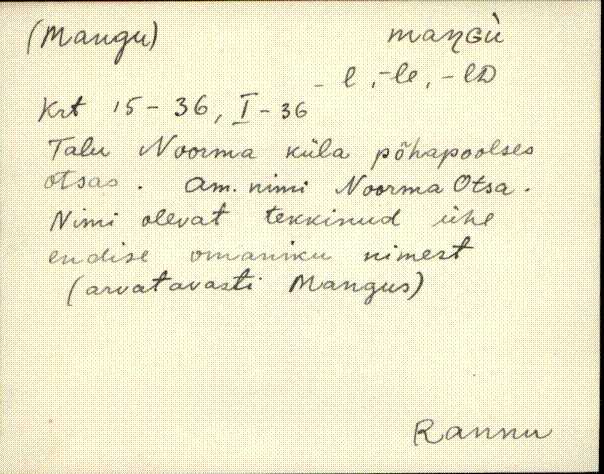 (Mangu) maŋGù
- l, -le, - lD
Krt 15-36, I-36
Talu Noorma küla põhapoolses
otsas. Am. nimi Noorma Otsa.
Nimi olevat tekkinud ühe
endise omaniku nimest
(arvatavasti Mangus)
Rannu